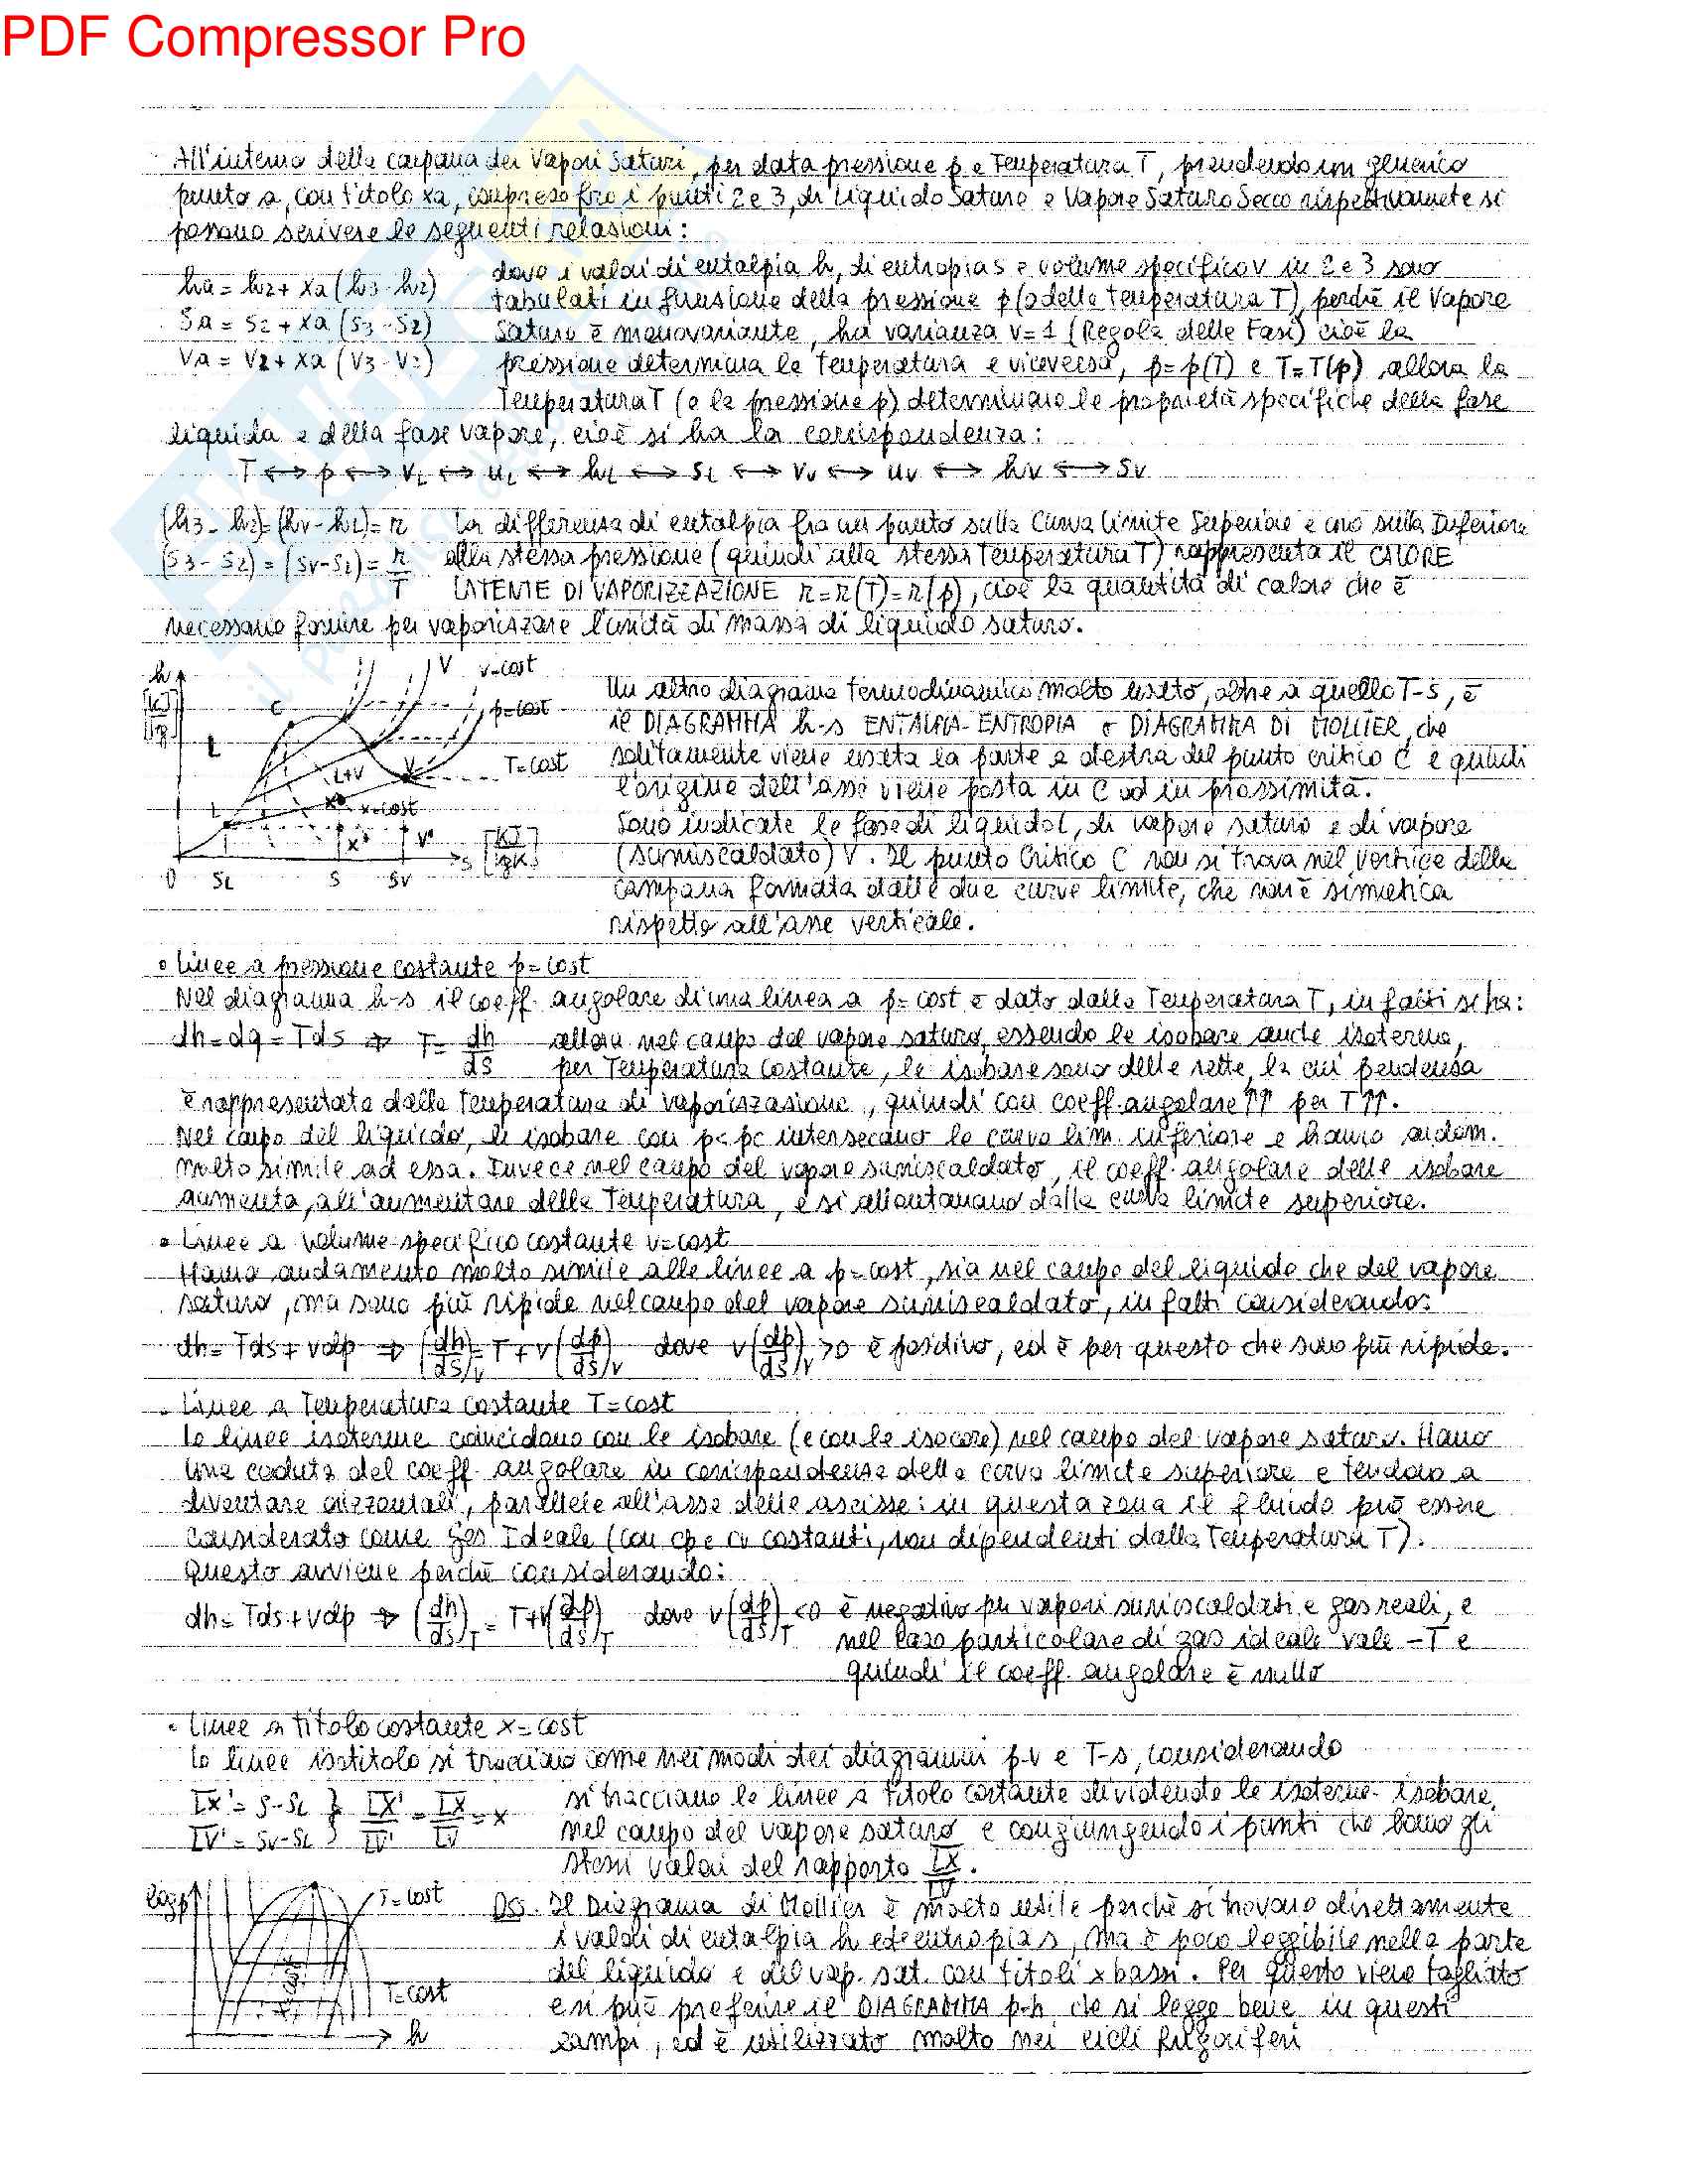 PDF Compressor Pro
All'interno della campana dei Vapori Saturi, per data pressione p e Temperatura T, prendendo un generico
punto a, con titolo xa, compreso fra i punti 2 e 3, di Liquido Saturo e Vapore Saturo Secco rispettivamente si
possono scrivere le seguenti relazioni:
ha = h2 + xa (h3 - h2)
sa = s2 + xa (s3 - s2)
va = v2 + xa (v3 - v2)
dove i valori di entalpia h, di entropia s e volume specifico v in 2 e 3 sono
tabulati in funzione della pressione p (o della Temperatura T), perchè il Vapore
Saturo è monovariante, ha varianza v=1 (Regola delle Fasi) cioè la
pressione determina la Temperatura e viceversa, p=p(T) e T=T(p), allora la
Temperatura T (o la pressione p) determinano le proprietà specifiche della fase
liquida e della fase vapore, cioè si ha la corrispondenza:
T ↔ p ↔ vL ↔ uL ↔ hL ↔ sL ↔ vv ↔ uv ↔ hv ↔ sv
(h3 - h2) = (hv - hL) = r
(s3 - s2) = (sv - sL) = r/T
La differenza di entalpia fra un punto sulla Curva Limite Superiore e uno sulla Inferiore
alla stessa pressione (quindi alla stessa Temperatura T) rappresenta il CALORE
LATENTE DI VAPORIZZAZIONE r=r(T)=r(p), cioè la quantità di calore che è
necessario fornire per vaporizzare l'unità di massa di liquido saturo.
h [kJ/kg]
C
V
v=cost
p=cost
T=cost
L
L+V
V
x=cost
X
L
X'
V'
s [kJ/kgK]
0 sL s sv
Un altro diagramma termodinamico molto usato, oltre a quello T-s, è
il DIAGRAMMA h-s ENTALPIA-ENTROPIA o DIAGRAMMA DI MOLLIER, che
solitamente viene usata la parte a destra del punto critico C e quindi
l'origine dell'asse viene posta in C od in prossimità.
Sono indicate le fase di liquido L, di vapore saturo e di vapore
(surriscaldato) V. Il punto Critico C non si trova nel vertice della
campana formata dalle due curve limite, che non è simmetrica
rispetto all'asse verticale.
• Linee a pressione costante p=cost
Nel diagramma h-s il coeff. angolare di una linea a p=cost è dato dalla Temperatura T, infatti si ha:
dh = dq = Tds ⇒ T = dh/ds allora nel campo del vapore saturo, essendo le isobare anche isoterme,
per Temperatura Costante, le isobare sono delle rette, la cui pendenza
è rappresentata dalla Temperatura di vaporizzazione, quindi con coeff. angolare ↑↑ per T ↑↑.
Nel campo del liquido, le isobare con p<pc intersecano la curva lim. inferiore e hanno andam.
molto simile ad essa. Invece nel campo del vapore surriscaldato, il coeff. angolare delle isobare
aumenta, all'aumentare della Temperatura, e si allontanano dalla curva limite superiore.
• Linee a volume specifico costante v=cost
Hanno andamento molto simile alle linee a p=cost, sia nel campo del liquido che del vapore
saturo, ma sono più ripide nel campo del vapore surriscaldato, infatti considerando:
dh = Tds + vdp ⇒ (dh/ds)v = T + v(dp/ds)v dove v(dp/ds)v >0 è positivo, ed è per questo che sono più ripide.
• Linee a Temperatura Costante T=cost
Le linee isoterme coincidono con le isobare (e con le isocore) nel campo del vapore saturo. Hanno
una caduta del coeff. angolare in corrispondenza della curva limite superiore e tendono a
diventare orizzontali, parallele all'asse delle ascisse: in questa zona il fluido può essere
considerato come Gas Ideale (con cp e cv costanti, non dipendenti dalla Temperatura T).
Questo avviene perchè considerando:
dh = Tds + vdp ⇒ (dh/ds)T = T + v(dp/ds)T dove v(dp/ds)T <0 è negativo per vapori surriscaldati e gas reali, e
nel caso particolare di gas ideale vale -T e
quindi il coeff. angolare è nullo
• Linee a titolo costante x=cost
Le linee isotitolo si tracciano come nei modi dei diagrammi p-v e T-s, considerando
LX' = s-sL
LV' = sv-sL } LX'/LV' = LX/LV = x
si tracciano le linee a titolo costante dividendo le isoterme-isobare,
nel campo del vapore saturo e congiungendo i punti che hanno gli
stessi valori del rapporto LX/LV.
logp
T=cost
x=cost
T=cost
h
Oss. Il Diagramma di Mollier è molto utile perchè si trovano direttamente
i valori di entalpia h ed entropia s, ma è poco leggibile nella parte
del liquido e del vap. sat. con titoli x bassi. Per questo viene tagliato
e si può preferire il DIAGRAMMA p-h che si legge bene in questi
campi, ed è utilizzato molto nei cicli frigoriferi